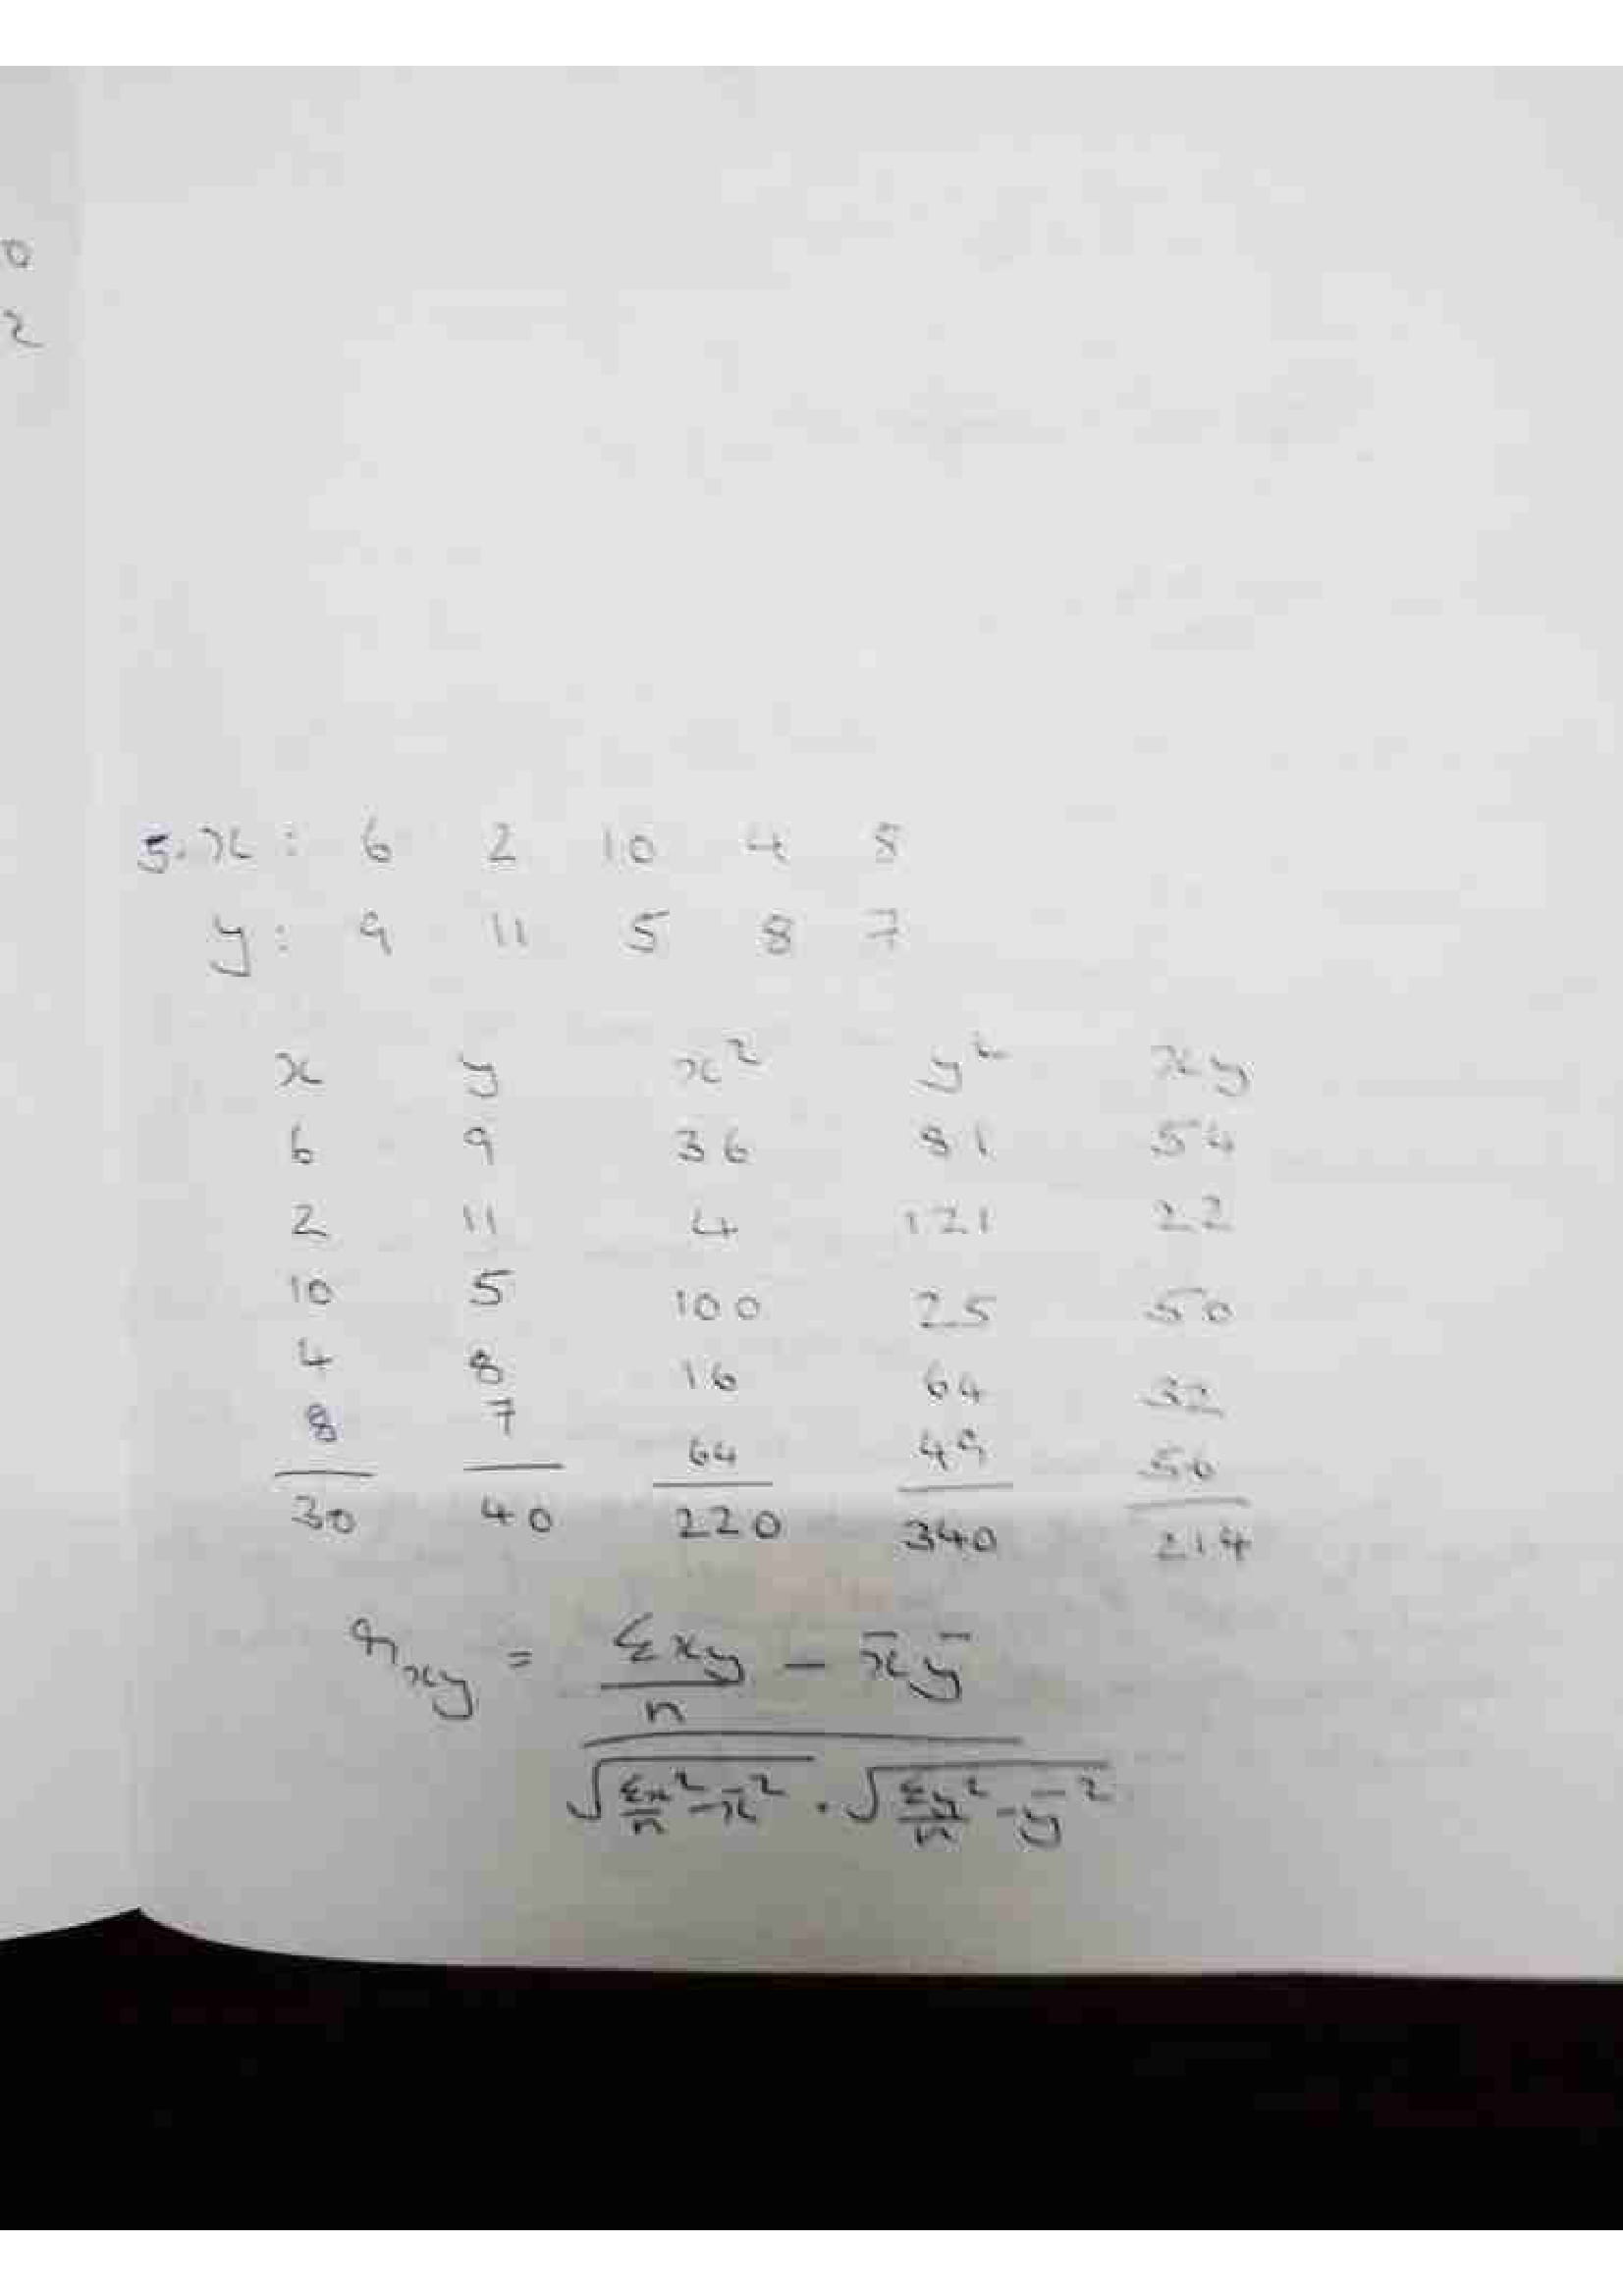 0
2
5. x : 6 2 10 4 8
y : 9 11 5 8 7
x y x² y² xy
6 9 36 81 54
2 11 4 121 22
10 5 100 25 50
4 8 16 64 32
8 7 64 49 56
30 40 220 340 214
r_xy = (Σxy/n − x̄ȳ) / (√(Σx²/n − x̄²) . √(Σy²/n − ȳ²))